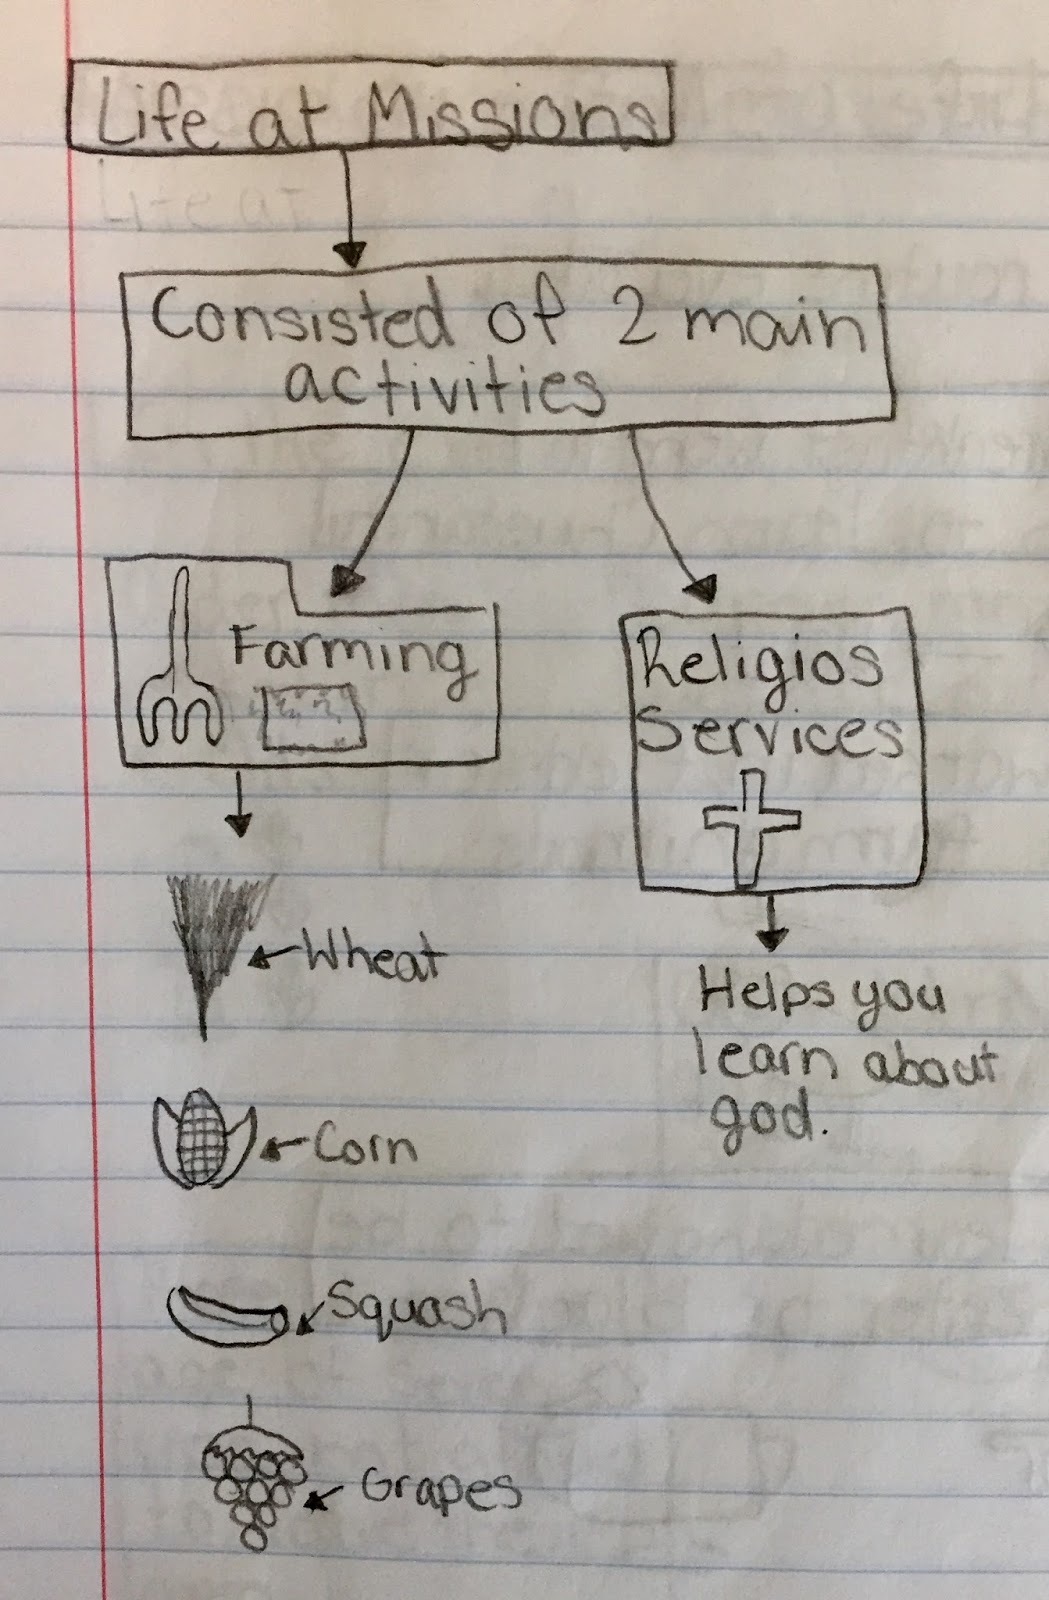 Life at Missions
Life at
Consisted of 2 main
activities
Farming
Religios
Services
Wheat
Helps you
learn about
god.
Corn
Squash
Grapes